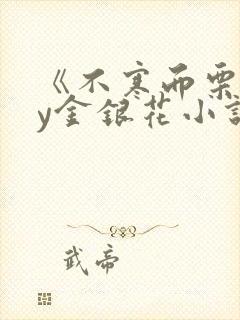 《不寒而栗
y金银花小说
武帝